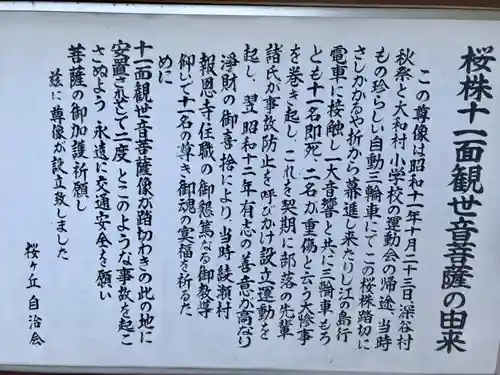 桜株十一面観世音菩薩の由来
この尊像は昭和十一年十月二十三日深谷村
秋祭と大和村小学校の運動会の帰途、当時
もの珍らしい自動三輪車にてこの桜株踏切に
さしかかるや折から驀進し来たりし江の島行
電車に接触し一大音響と共に三輪車もろ
とも十一名即死、二名が重傷と云う大惨事
を巻き起し、これを契期に部落の先輩
諸氏が事故防止を呼びかけ設立運動を
起し、翌昭和十二年有志の善意が高なり
浄財の御喜捨により、当時綾瀬村
報恩寺住職の御懇篤なる御教導
仰いで十一名の尊き御魂の冥福を祈るた
めに
十一面観世音菩薩像が踏切わきの此の地に
安置されて二度とこのような事故を起こ
さぬよう永遠に交通安全を願い
菩薩の御加護祈願し
茲に尊像が設立致しました
桜ヶ丘自治会